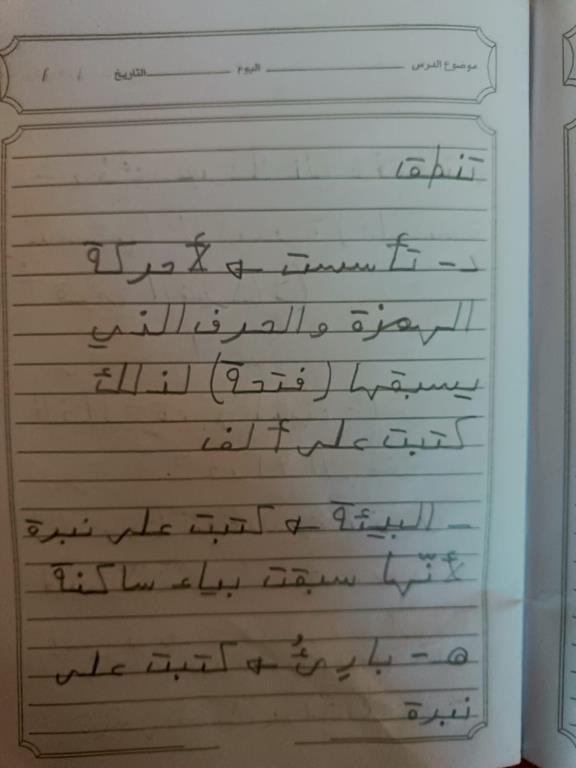 موضوع الدرس اليوم التاريخ / /
تنطق
د- تأسست → لأ حركة
الهمزة والحرف الذي
يسبقها (فتحة) لذالك
كتبت على ألف
- البيئة → كتبت على نبرة
لأنّها سبقت بياء ساكنة
هـ - بارئُ → كتبت على
نبرة